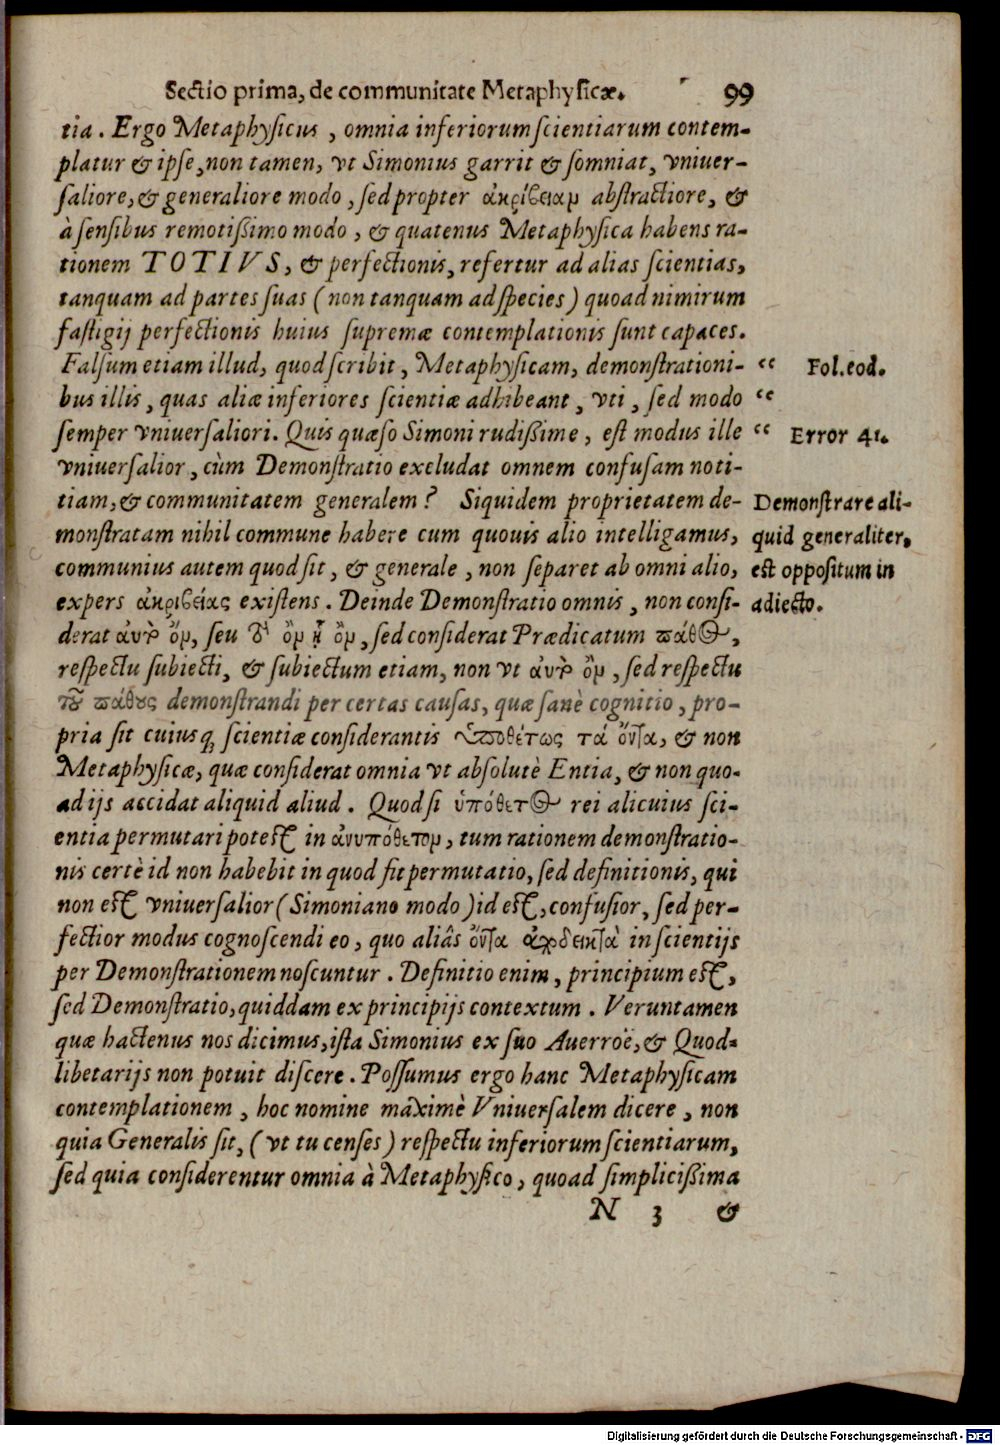 Sectio prima, de communitate Metaphysicæ. 99
tia. Ergo Metaphysicus, omnia inferiorum scientiarum contem-
platur & ipse, non tamen, vt Simonius garrit & somniat, vniuer-
saliore, & generaliore modo, sed propter ἀκρίβειαν abstractiore, &
à sensibus remotißimo modo, & quatenus Metaphysica habens ra-
tionem TOTIVS, & perfectionis, refertur ad alias scientias,
tanquam ad partes suas (non tanquam ad species) quoad nimirum
fastigij perfectionis huius supremæ contemplationis sunt capaces.
Falsum etiam illud, quod scribit, Metaphysicam, demonstrationi- “ Fol. eod.
bus illis, quas aliæ inferiores scientiæ adhibeant, vti, sed modo “
semper vniuersaliori. Quis quæso Simoni rudißime, est modus ille “ Error 41.
vniuersalior, cùm Demonstratio excludat omnem confusam noti-
tiam, & communitatem generalem? Siquidem proprietatem de- Demonstrare ali-
monstratam nihil commune habere cum quouis alio intelligamus, quid generaliter,
communius autem quod sit, & generale, non separet ab omni alio, est oppositum in
expers ἀκριβείας existens. Deinde Demonstratio omnis, non consi- adiecto.
derat αὐτὸ ὄν, seu τὸ ὂν ᾗ ὂν, sed considerat Prædicatum πάθος,
respectu subiecti, & subiectum etiam, non vt αὐτὸ ὂν, sed respectu
τοῦ πάθους demonstrandi per certas causas, quæ sanè cognitio, pro-
pria sit cuiusq; scientiæ considerantis ὑποθέτως τὰ ὄντα, & non
Metaphysicæ, quæ considerat omnia vt absolutè Entia, & non quo-
ad ijs accidat aliquid aliud. Quod si ὑπόθετος rei alicuius sci-
entia permutari potest in ἀνυπόθετον, tum rationem demonstratio-
nis certè id non habebit in quod fit permutatio, sed definitionis, qui
non est vniuersalior (Simoniano modo) id est, confusior, sed per-
fectior modus cognoscendi eo, quo aliâs ὄντα in scientijs
per Demonstrationem noscuntur. Definitio enim, principium est,
sed Demonstratio, quiddam ex principijs contextum. Veruntamen
quæ hactenus nos dicimus, ista Simonius ex suo Auerroë, & Quod-
libetarijs non potuit discere. Possumus ergo hanc Metaphysicam
contemplationem, hoc nomine maximè Vniuersalem dicere, non
quia Generalis sit, (vt tu censes) respectu inferiorum scientiarum,
sed quia considerentur omnia à Metaphysico, quoad simplicißima
N 3 &
Digitalisierung gefördert durch die Deutsche Forschungsgemeinschaft - DFG